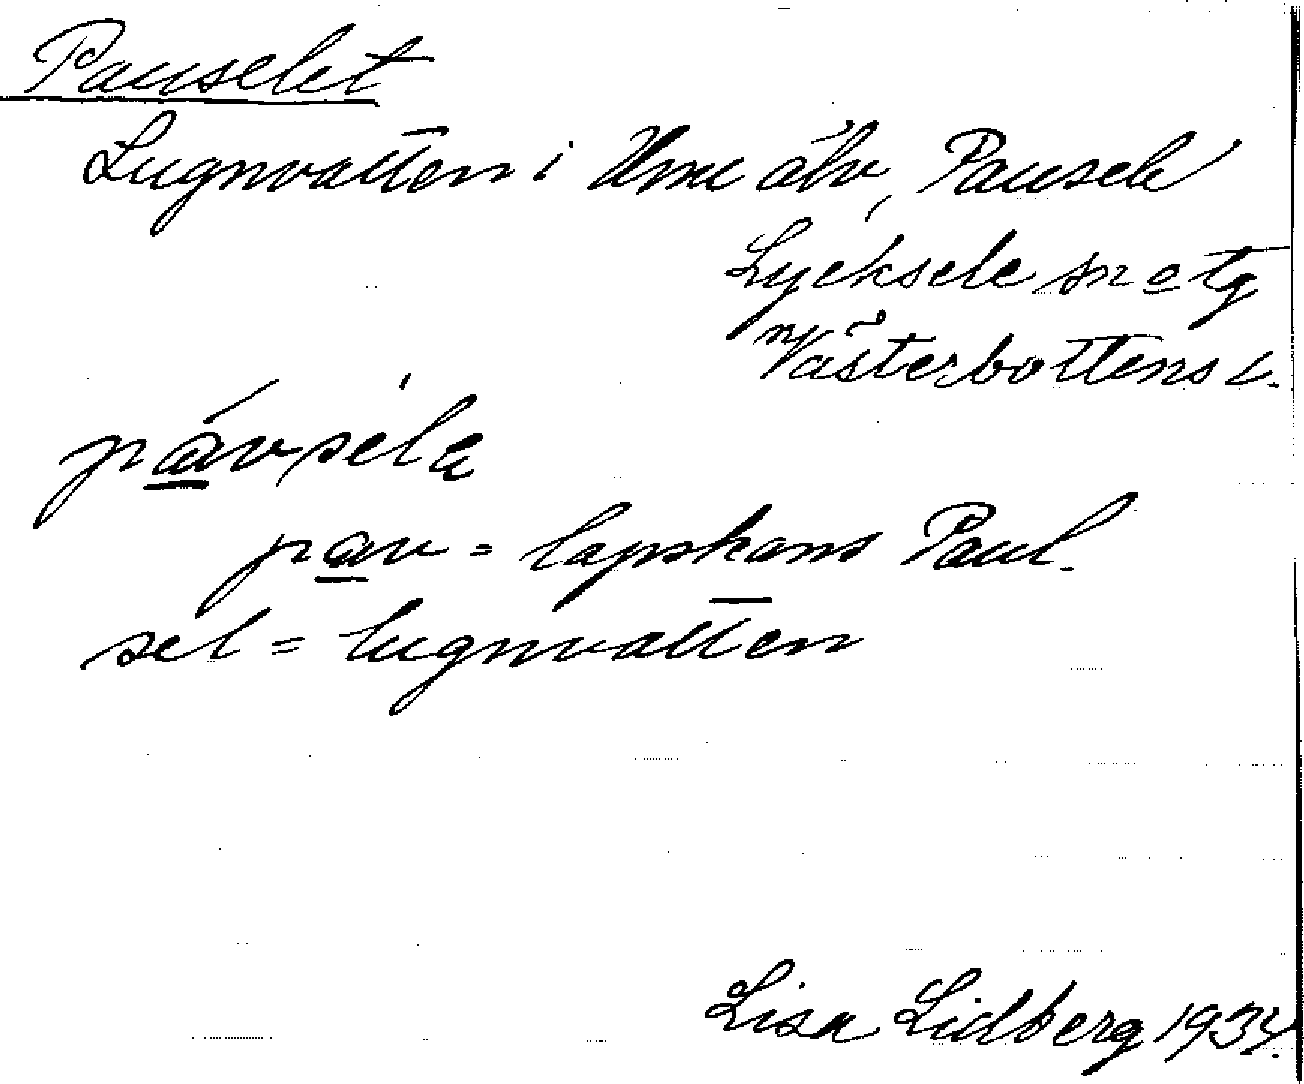 Pauselet
Lugnvatten i Ume älv, Pausele
Lycksele sn o tg
Västerbottens l.
pávsélɐ
pav = lapskans Paul.
sel = lugnvatten
Lisa Lidberg 1934.